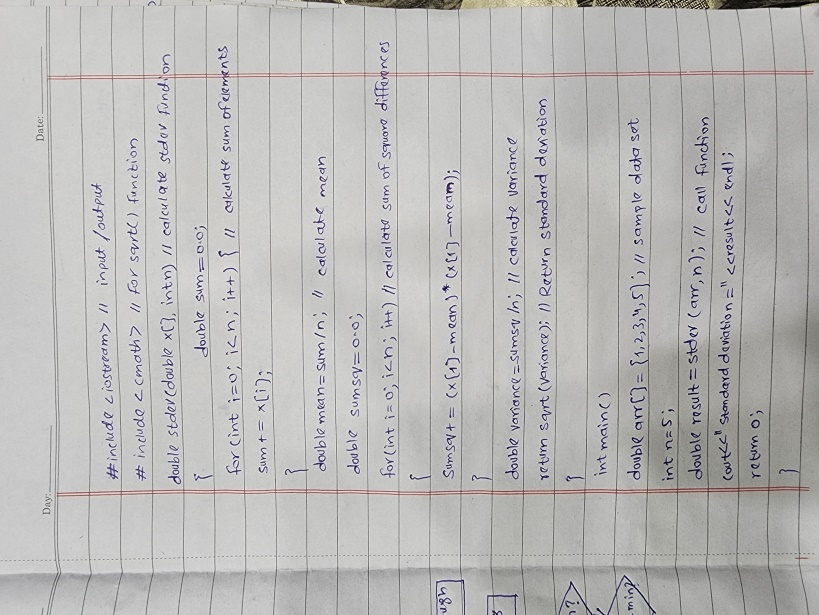 Day:
Date:
#include <iostream> // input/output
# include <cmath> // for sqrt() function
double stdev(double x[], int n) // calculate stdev function
{ double sum=0.0;
for(int i=0; i<n; i++) { // calculate sum of elements
sum+= x[i];
}
double mean=sum/n; // calculate mean
double sumsq=0.0;
for(int i=0; i<n; i++) // calculate sum of square differences
{
sumsq+= (x[i]-mean)*(x[i]-mean);
}
double variance=sumsq/n; // calculate variance
return sqrt(variance); // Return standard deviation
}
int main()
double arr[]={1,2,3,4,5}; // sample data set
int n=5;
double result=stdev(arr,n); // call function
cout<<"standard deviation="<<result<<endl;
return 0;
}
ugh
n?
min?